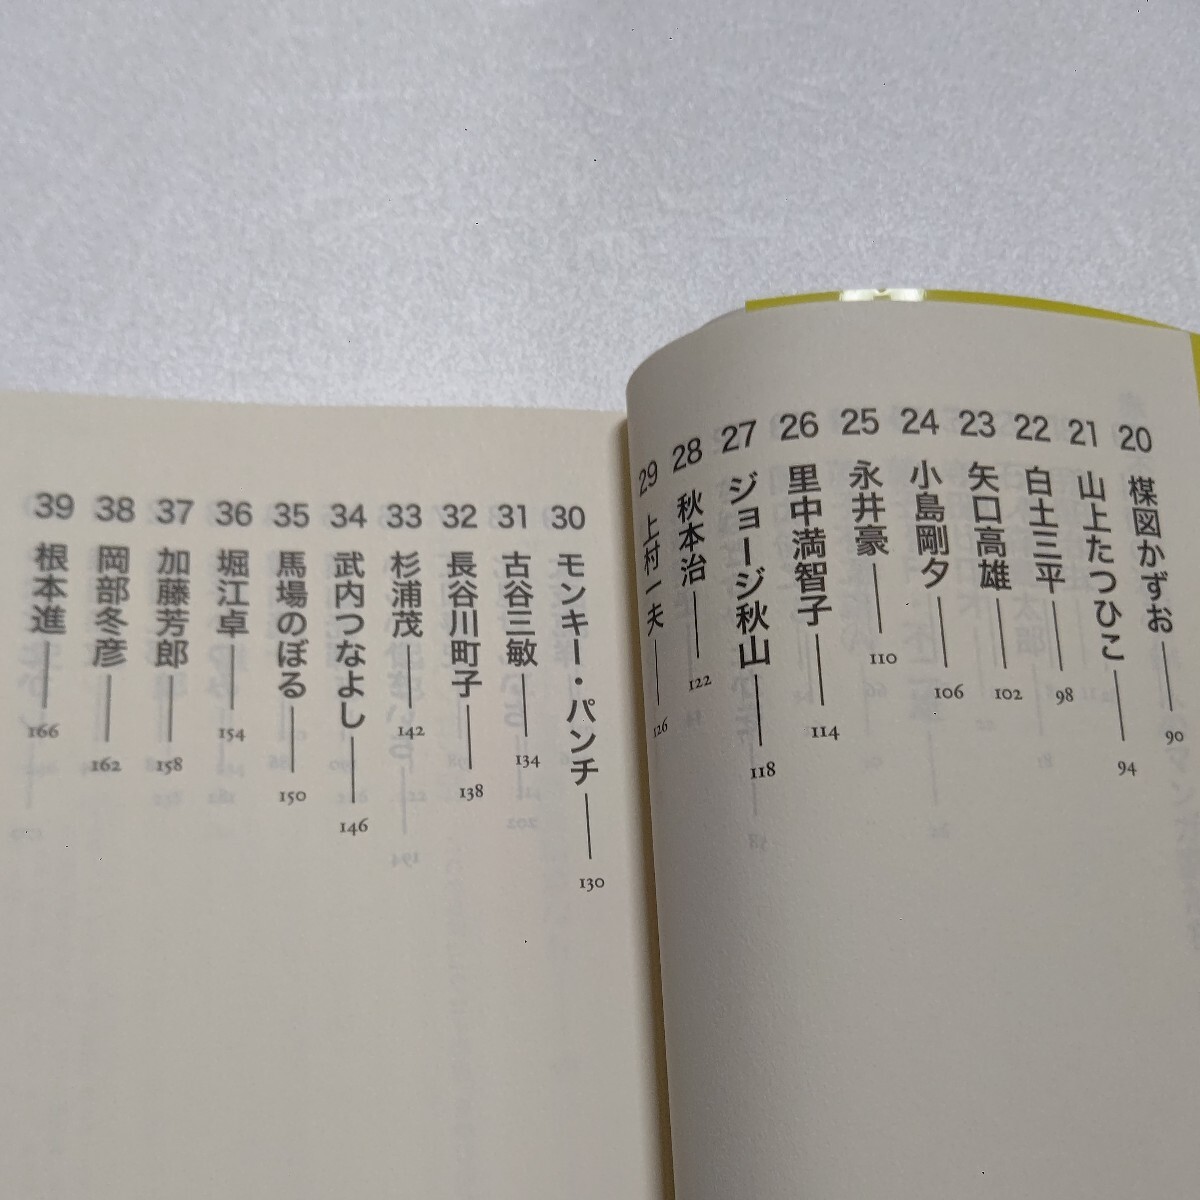 20 楳図かずお 90
21 山上たつひこ 94
22 白土三平 98
23 矢口高雄 102
24 小島剛夕 106
25 永井豪 110
26 里中満智子 114
27 ジョージ秋山 118
28 秋本治 122
29 上村一夫 126
30 モンキー・パンチ 130
31 古谷三敏 134
32 長谷川町子 138
33 杉浦茂 142
34 武内つなよし 146
35 馬場のぼる 150
36 堀江卓 154
37 加藤芳郎 158
38 岡部冬彦 162
39 根本進 166